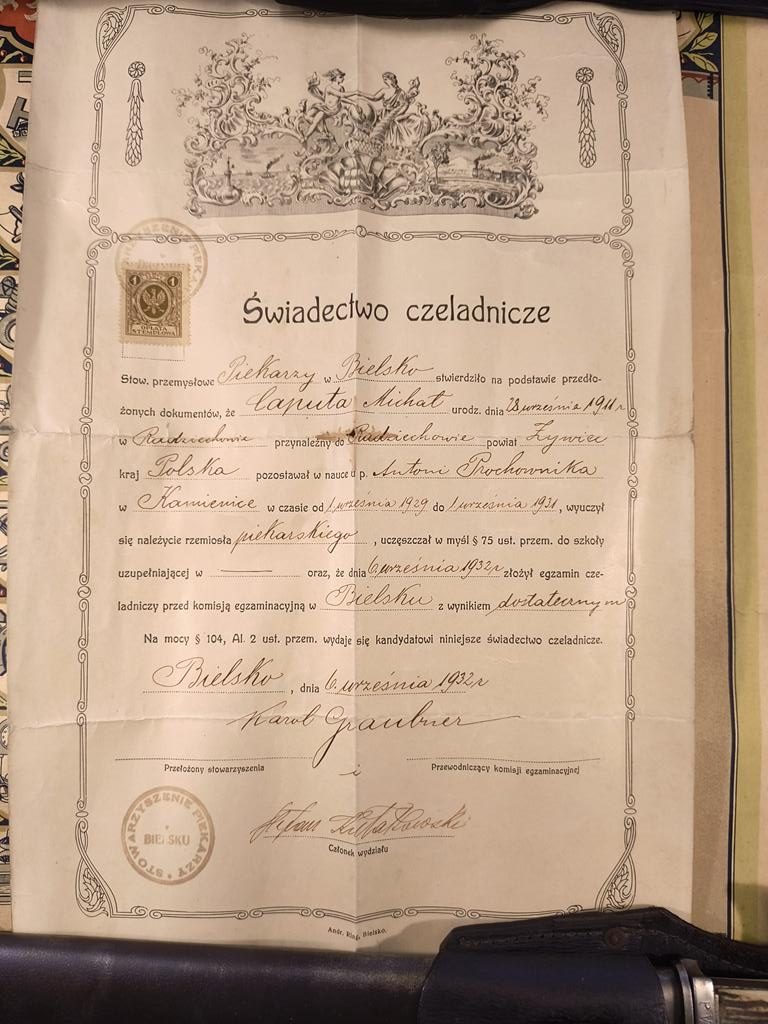 1 1
OPŁATA
STEMPLOWA
Świadectwo czeladnicze
Stow. przemysłowe Piekarzy w Bielsko stwierdziło na podstawie przedło-
żonych dokumentów, że Caputa Michał urodz. dnia 28 września 1911 r
w Radziechowie przynależny do Radziechowie powiat Żywiec
kraj Polska pozostawał w nauce u p. Antoni Prochownika
w Kamienice w czasie od 1 września 1929 do 1 września 1931, wyuczył
się należycie rzemiosła piekarskiego, uczęszczał w myśl § 75 ust. przem. do szkoły
uzupełniającej w ——— oraz, że dnia 6 września 1932 r złożył egzamin cze-
ladniczy przed komisją egzaminacyjną w Bielsku z wynikiem dostatecznym
Na mocy § 104, Al. 2 ust. przem. wydaje się kandydatowi niniejsze świadectwo czeladnicze.
Bielsko, dnia 6. września 1932 r
Karol Graubner
Przełożony stowarzyszenia i Przewodniczący komisji egzaminacyjnej
Stefan
Członek wydziału
STOWARZYSZENIE PIEKARZY
BIELSKU
Andr. Ring, Bielsko.